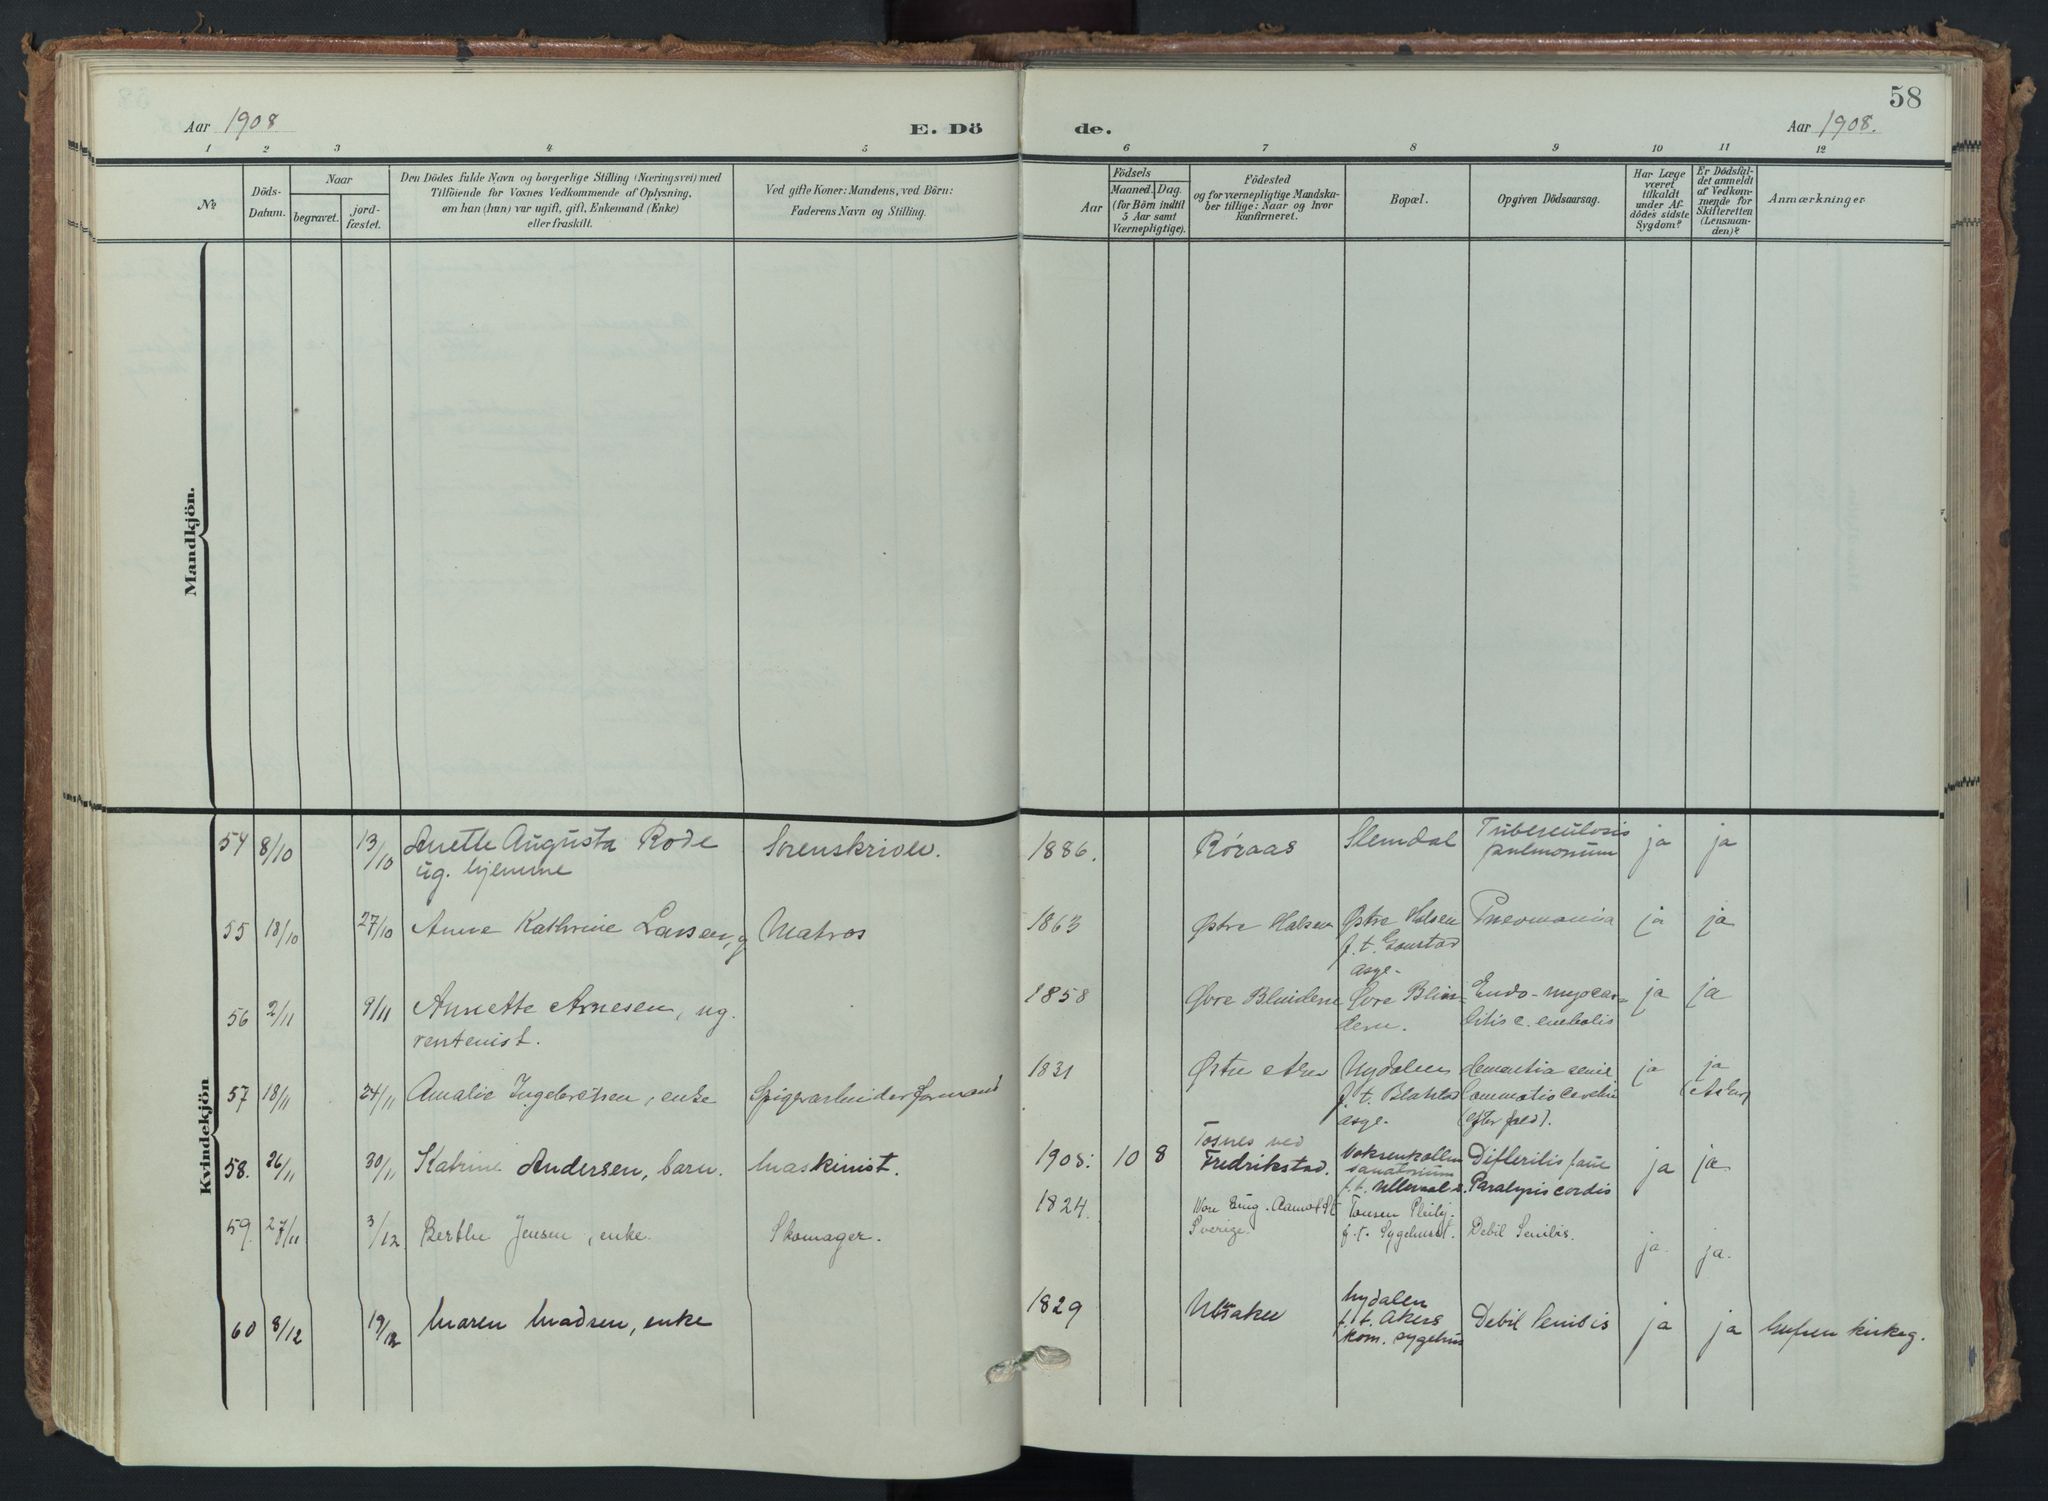 58
Aar 1908
E. Dö
de.
Aar 1908.
1 2 3 4 5 6 7 8 9 10 11 12
No
Döds-
Datum.
Naar
begravet.
jord-
fæstet.
Den Dödes fulde Navn og borgerlige Stilling (Næringsvei) med
Tilföiende for Voxnes Vedkommende af Oplysning,
om han (hun) var ugift, gift, Enkemand (Enke)
eller fraskilt.
Ved gifte Koner: Mandens, ved Börn:
Faderens Navn og Stilling.
Födsels
Aar
Maaned.
Dag.
(for Börn indtil
5 Aar samt
Værnepligtige).
Födested
og for værnepligtige Mandska-
ber tillige: Naar og hvor
konfirmeret.
Bopæl.
Opgiven Dödsaarsag.
Har Læge
været
tilkaldt
under Af-
dödes sidste
Sygdom?
Er Dödsfal-
det anmeldt
af Vedkom-
mende for
Skifteretten
(Lensman-
den)?
Anmærkninger
Mandkjön.
Kvindekjön
54 8/10 13/10 Anette Augusta Rode Sorenskriver. 1886. Røraas Slemdal Tuberculosis ja ja
ug. hjemme pulmonum
55 18/10 27/10 Anne Kathrine Larsen, g Matros 1863 Østre Halsen Østre Halsen Pneomonia ja ja
f. t. Gaustad
asyl
56 2/11 9/11 Annette Arnesen, ug. 1858 Øvre Blindern Øvre Blin= Endo-myocar= ja ja
rentenist. dern. ditis c. embolis
57 18/11 24/11 Amalie Ingebretsen, enke Spigerarbeiderformand 1831 Østre Aker Nydalen dementia senil ja ja
f. t. asyl. Commotio cerebri (Aker)
(efter fald).
58. 26/11 30/11 Katrine Andersen, barn. Maskinist. 1908. 10 8 Tosnes ved Voksenkollen Difteritis ja ja
Fredrikstad. sanatorium
f. t. Ullevaal s. Paralysis cordis
59. 27/11 3/12 Berthe Jensen, enke. Skomager. 1824. Tonsen Debil Senilis. ja. ja.
Sverige. f. t. Sygehuset.
60 8/12 19/12 Maren Madsen, enke 1829 Nydalen Debil Senilis ja ja kirkeg.
f. t. Akers
kom. sygehus